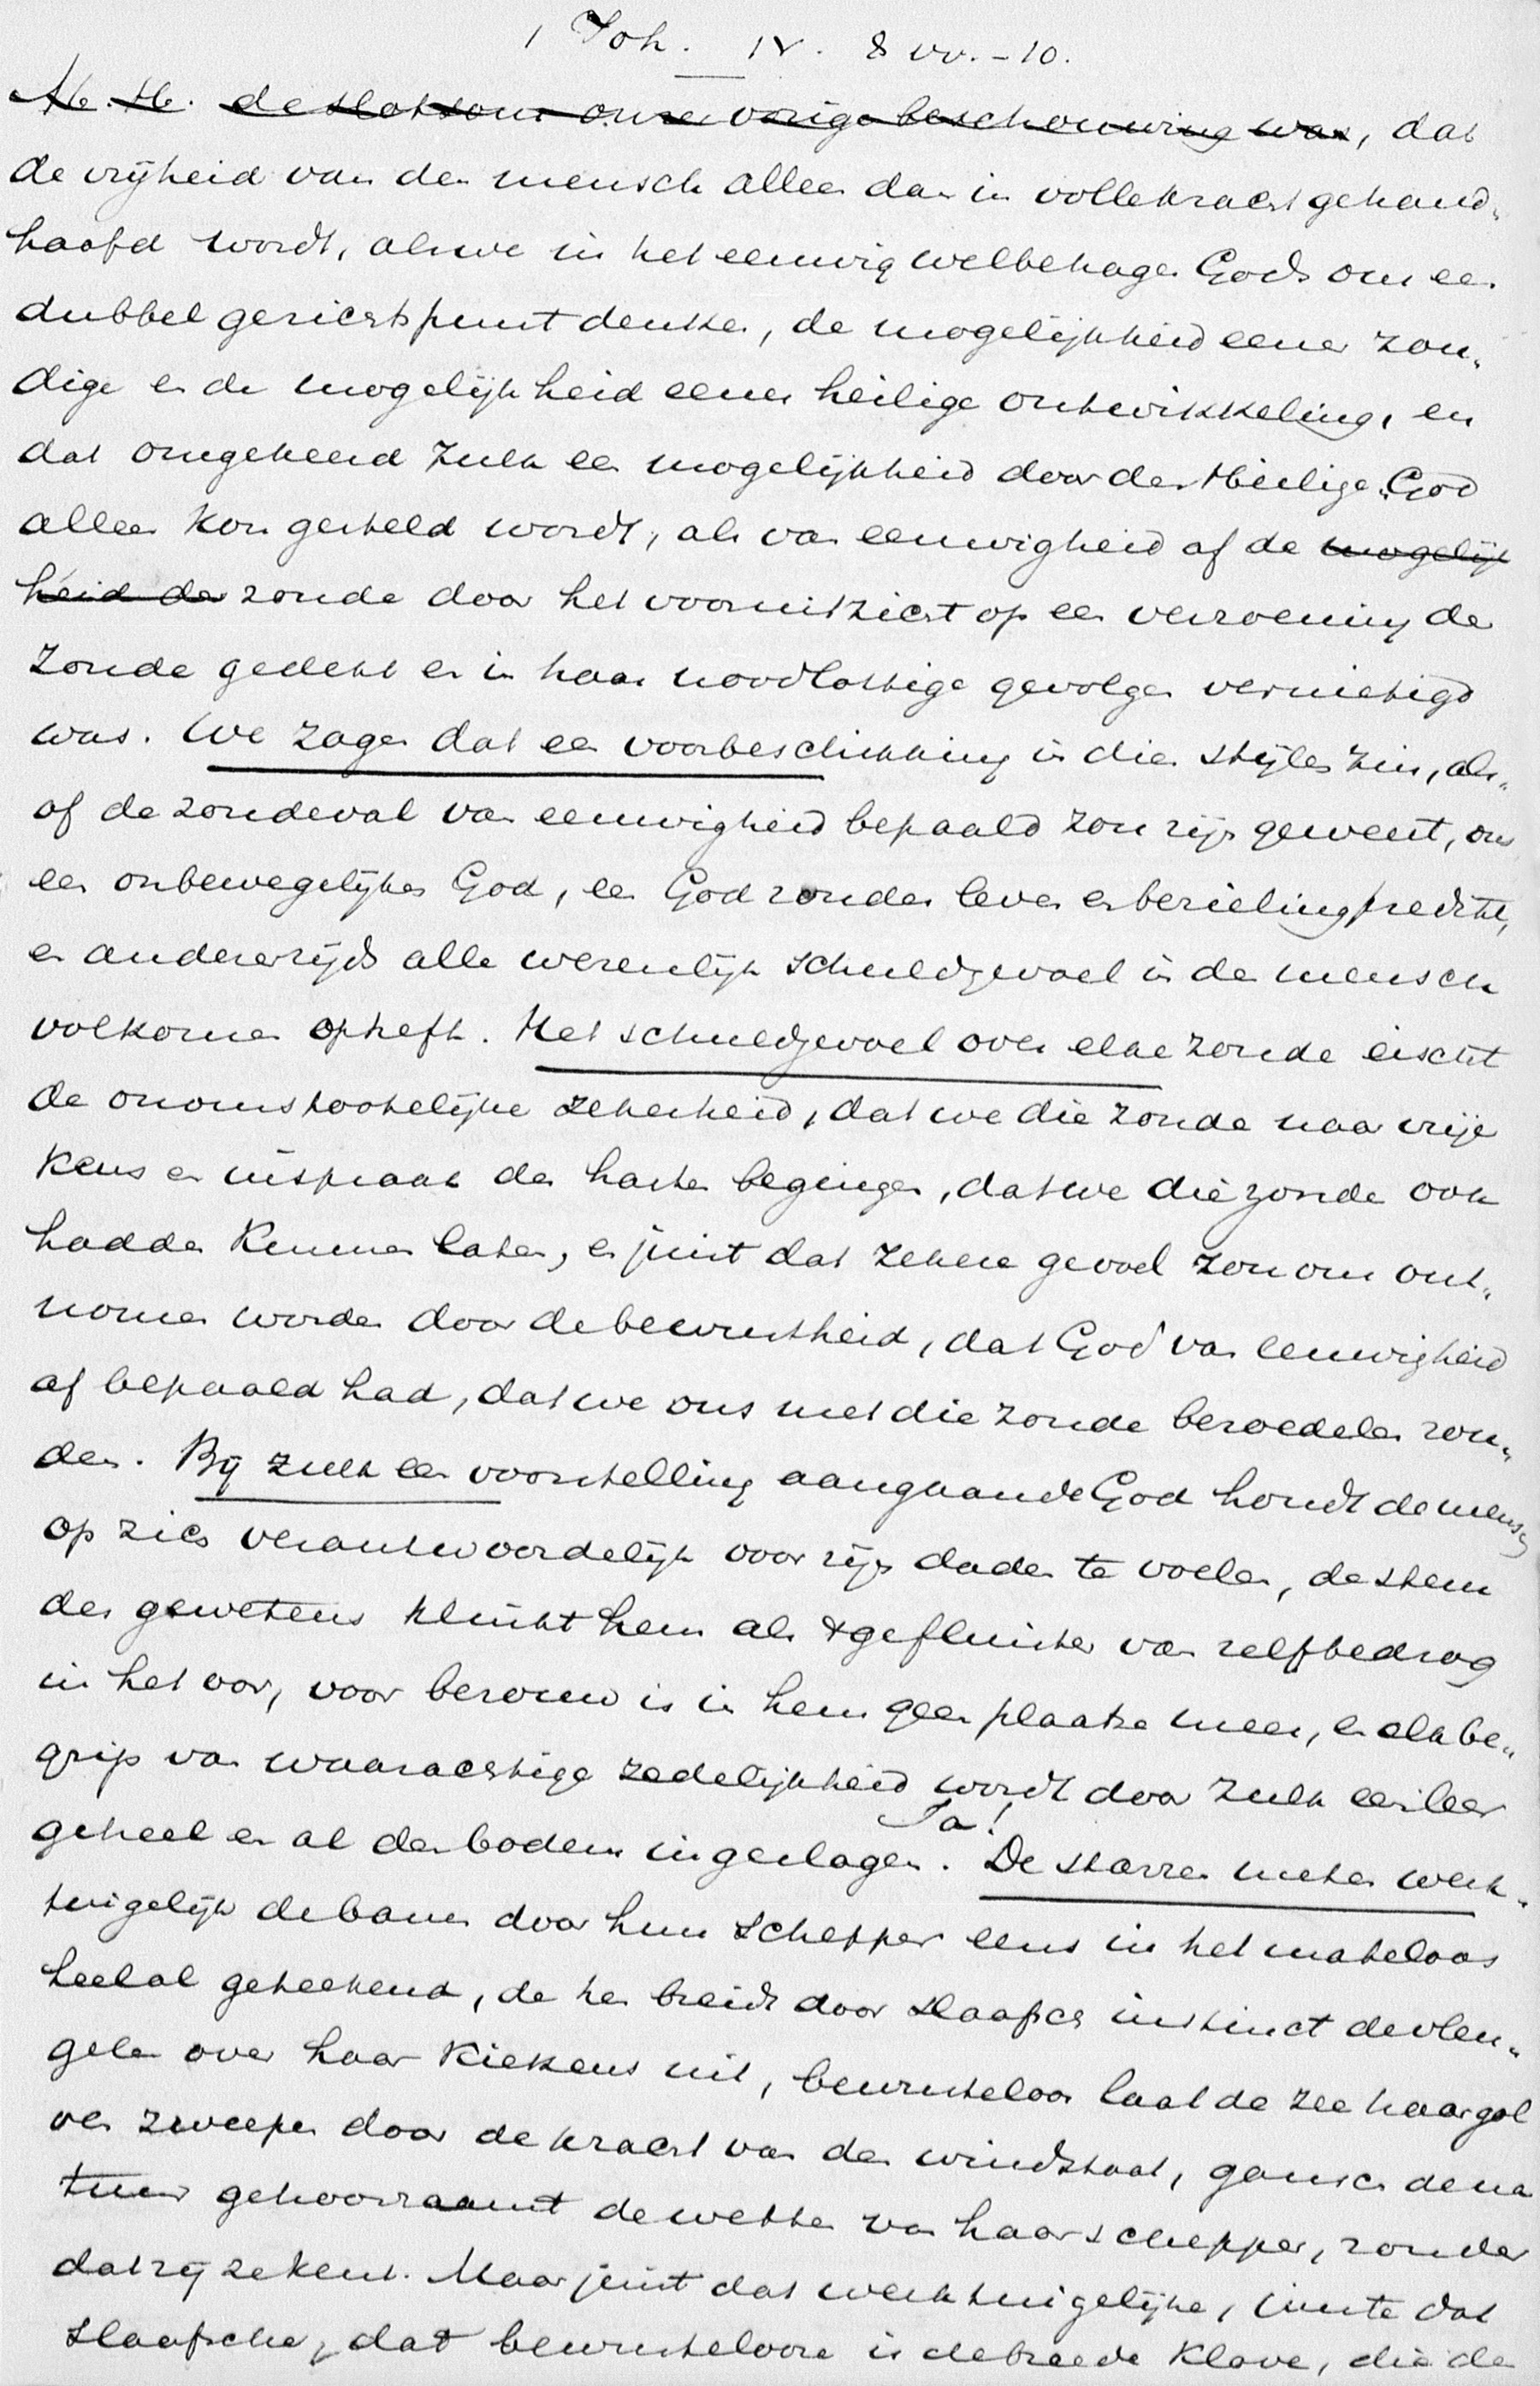 1 Joh. IV. 8 vv. - 10.
M. H. de slotsom onzer vorige beschouwing was, dat
de vrijheid van den mensch alleen dan in volle kracht gehand„
haafd wordt, als we in het eeuwig welbehagen Gods om een
dubbel gezichtspunt denken, de mogelijkheid eener zon„
dige en de mogelijkheid eener heilige ontwikkeling, en
dat omgekeerd zulk een mogelijkheid door den Heilige God
alleen kon gesteld wordt, als van eeuwigheid af de mogelijk
heid der zonde door het vooruitzicht op een verzoening der
zonde gedekt en in haar noodlottige gevolgen vernietigd
was. We zagen dat een voorbeschikking in dien stijlen zin, als„
of de zondeval van eeuwigheid bepaald zou zijn geweest, ons
een onbewegelijken God, een God zonder leven en bezieling predikt,
en anderzijds alle wezenlijk schuldgevoel in den mensch
volkomen opheft. Het schuldgevoel over elke zonde eischt
de onomstootelijke zekerheid, dat we die zonde naar vrije
keus en inspraak des harten begingen, dat we die zonde ook
hadden kunnen laten, en juist dat zekere gevoel zou ons ont„
nomen worden door de bewustheid, dat God van eeuwigheid
af bepaald had, dat we ons met die zonde bezoedelen zou„
den. Bij zulk een voorstelling aangaande God houdt de mensch
op zich verantwoordelijk voor zijn daden te voelen, de stem
des gewetens klinkt hem als gefluister van zelfbedrog
in het oor, voor berouw is in hem geen plaatse meer, en elk be„
grip van waarachtige zedelijkheid wordt door zulk een leer
Ja!
geheel en al den bodem ingeslagen. De starren meten werk„
tuigelijk de banen door hun Schepper eens in het mateloos
heelal geteekend, de hen breidt door slaafsch instinct de vleu„
gelen over haar kiekens uit, bewusteloos laat de zee haar gol
ven zweepen door de kracht van den wind, gansch de na
tuur gehoorzaamt de wetten van haar schepper, zonder
dat zij ze kent. Maar juist dat werktuigelijke, juiste dat
slaafsche, dat bewustelooze is de breede klove, die de